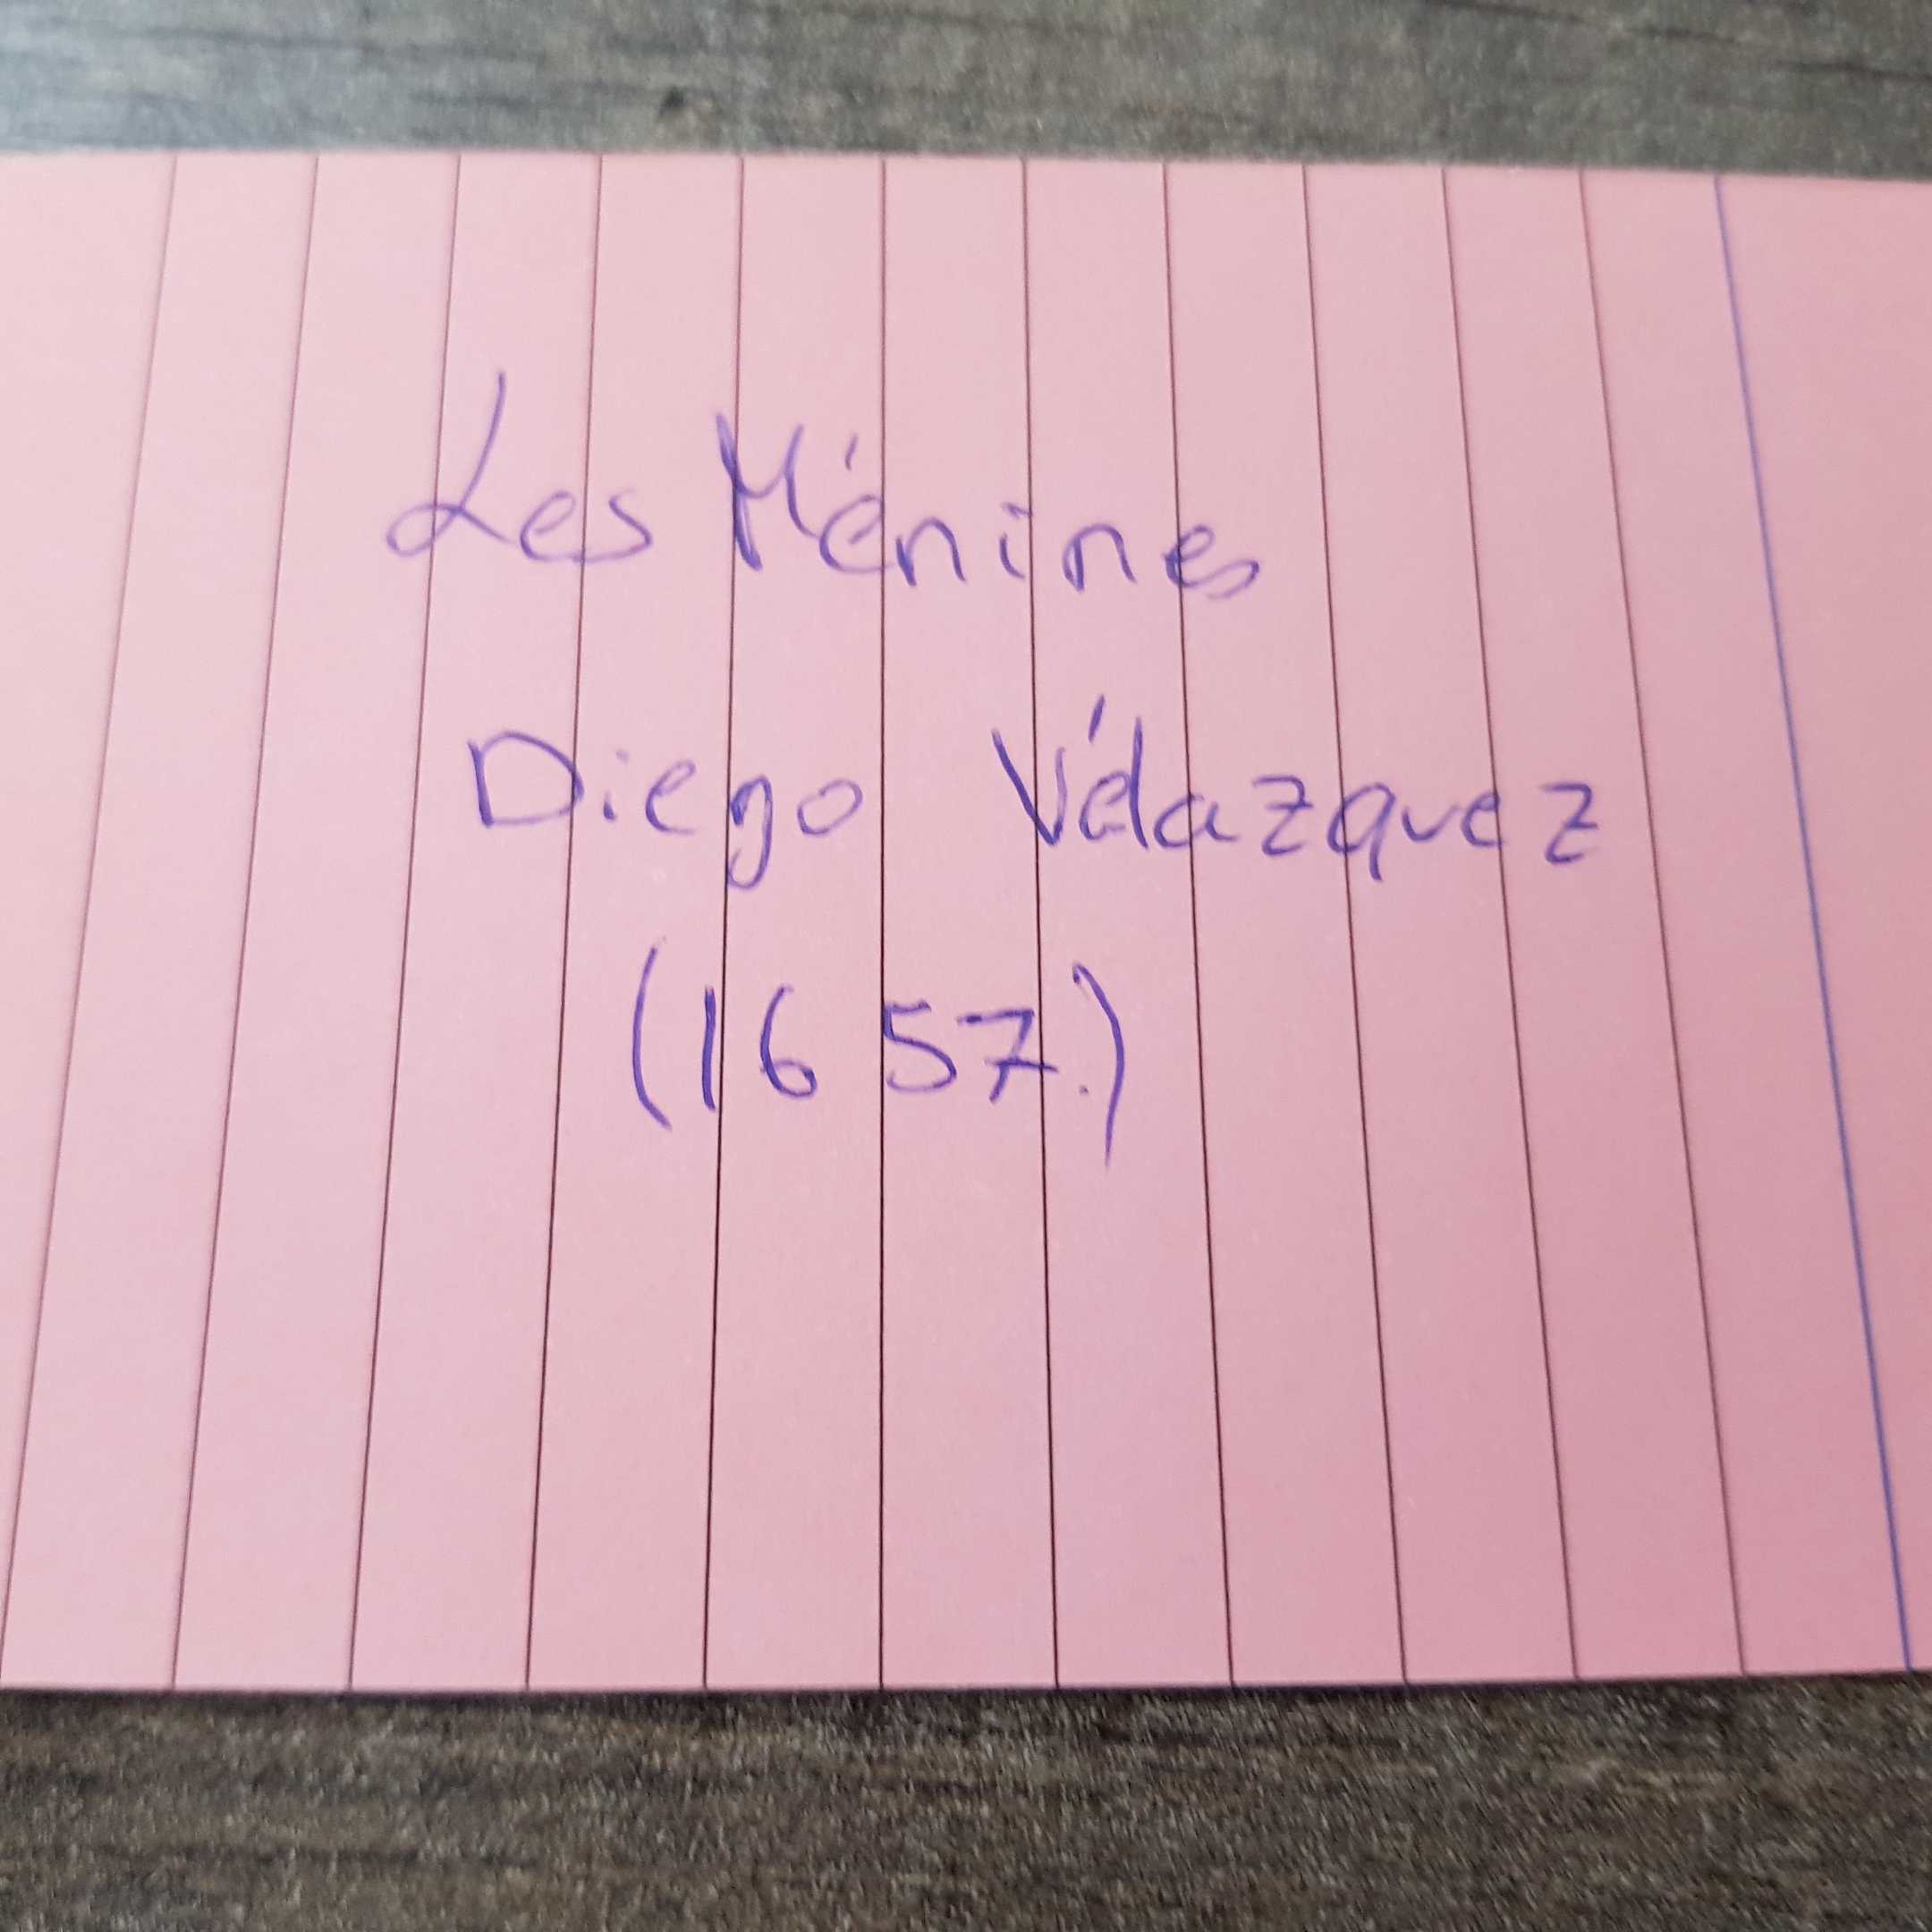 Les Ménines
Diego Vélazquez
(1657.)